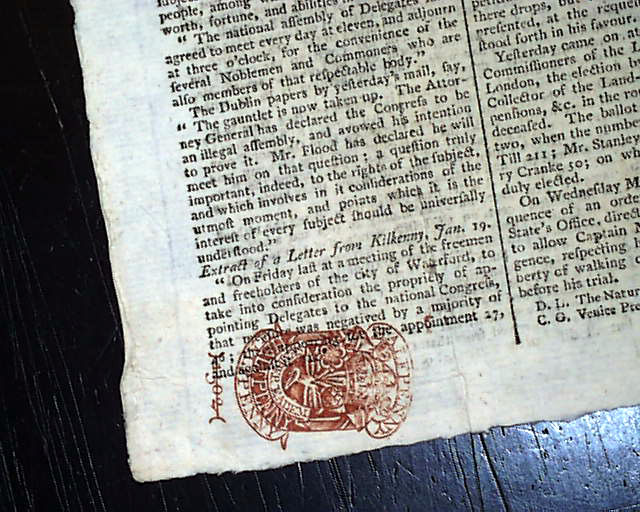 people, among
worth, fortune, and abilities
" The national assembly of Delegates
agreed to meet every day at eleven, and adjourn
at three o'clock, for the convenience of the
ſeveral Noblemen and Commoners who are
alſo members of that reſpectable body."
The Dublin papers by yeſterday's mail, ſay,
" The gauntlet is now taken up. The Attor-
ney General has declared the Congreſs to be
an illegal aſſembly, and avowed his intention
to prove it. Mr. Flood has declared he will
meet him on that queſtion; a queſtion truly
important, indeed, to the rights of the ſubject,
and which involves in it conſiderations of the
utmoſt moment, and points which it is the
intereſt of every ſubject ſhould be univerſally
underſtood."
Extract of a Letter from Kilkenny, Jan. 19.
" On Friday laſt at a meeting of the freemen
and freeholders of the city of Waterford, to
take into conſideration the propriety of ap-
pointing Delegates to the national Congreſs,
that was negatived by a majority of
the appointment 27,
there drops, but
preſented, at the requeſt
ſtood forth in his favour
Yeſterday came on,
Commiſſioners of the L
London, the election
Collector of the Land
penſions, &c. in the
deceaſed. The ballot
two, when the number
Till 211; Mr. Stanley
ry Cranke 50; on
duly elected.
On Wedneſday M
quence of an order
State's Office, direc
to allow Captain
gence, reſpecting
berty of walking
before his trial.
D. L. The Natur
C. G. Venice Pre